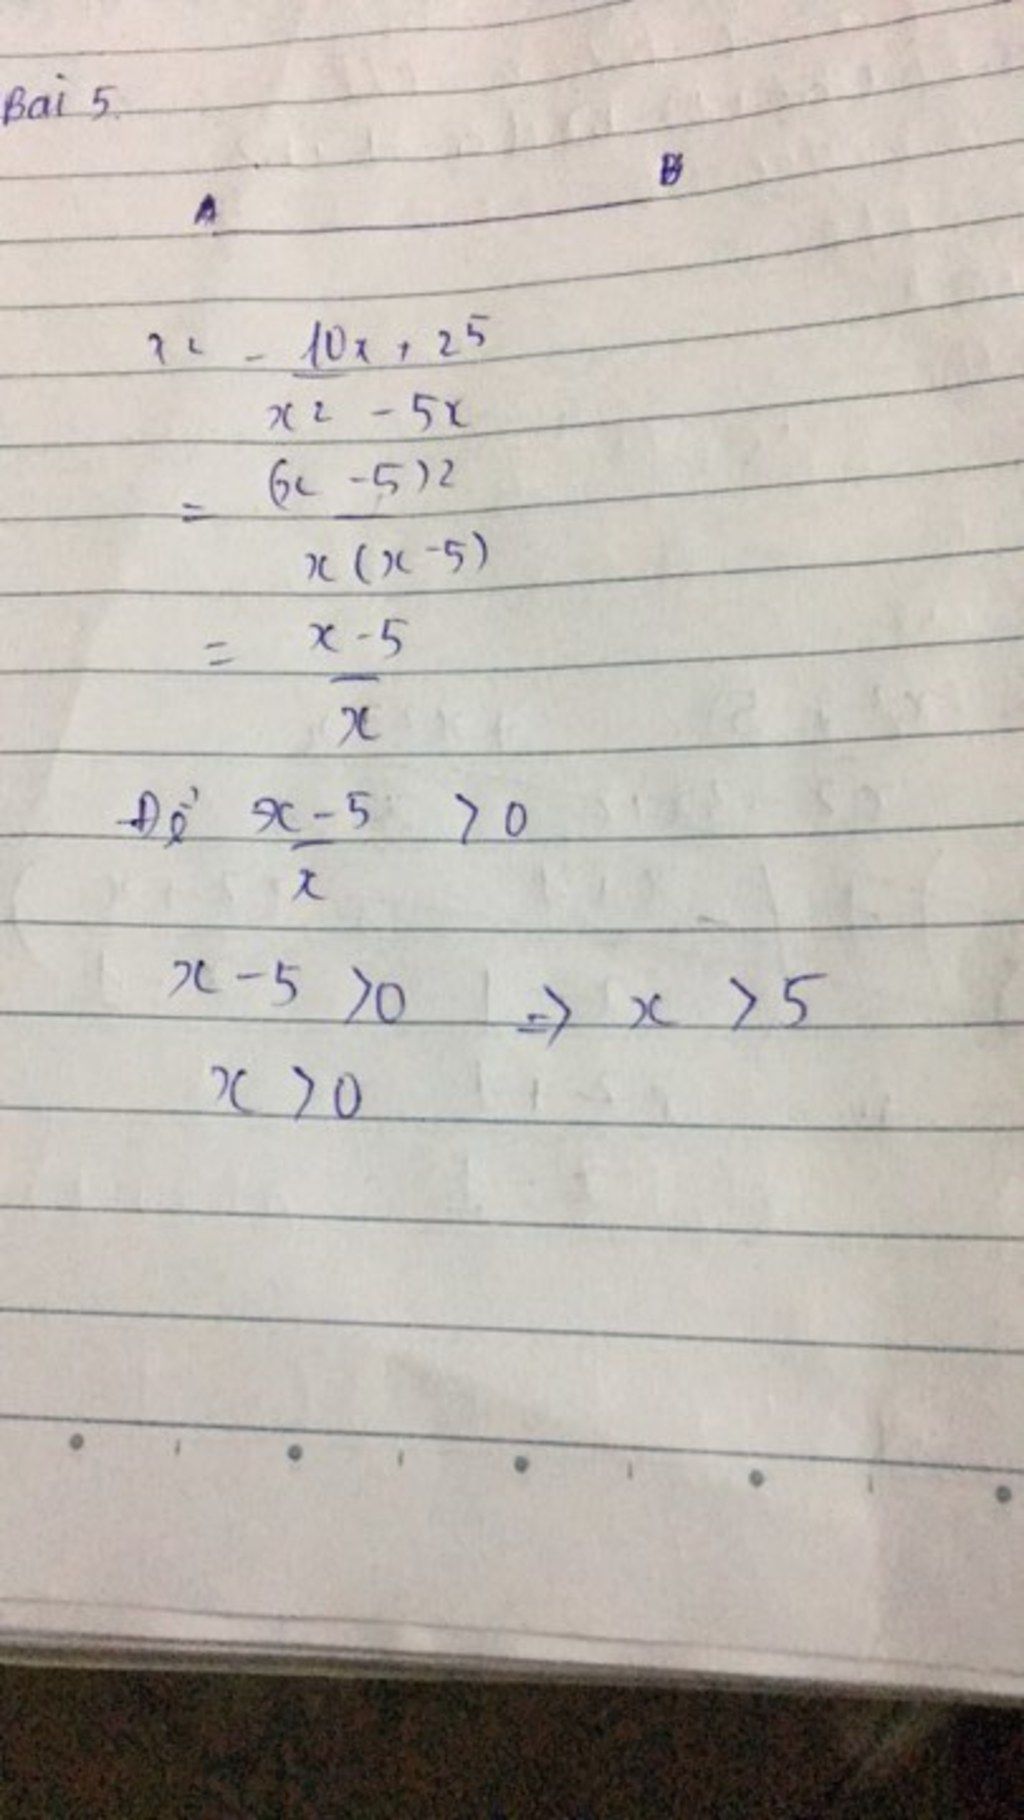 Bài 5.
A B
x2 - 10x + 25
x2 - 5x
= (x - 5)2
x (x - 5)
= x - 5
x
Để x - 5 > 0
x
x - 5 > 0 => x > 5
x > 0